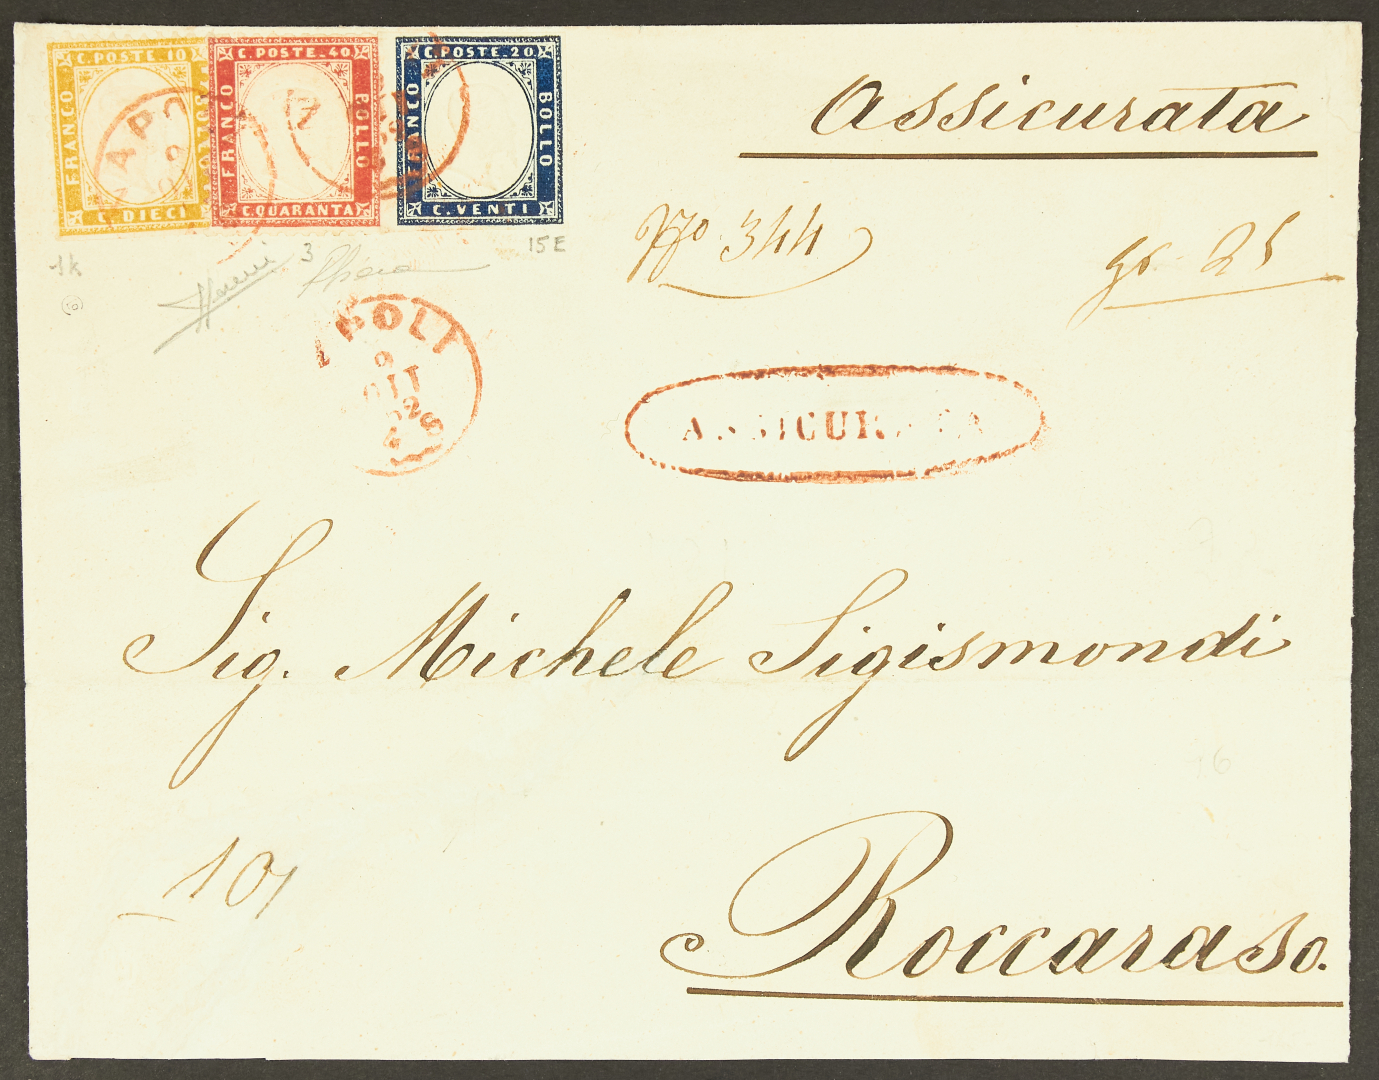 C. POSTE. 10
FRANCO
BOLLO
C. DIECI
C. POSTE. 40
FRANCO
BOLLO
C. QUARANTA
C. POSTE. 20
FRANCO
BOLLO
C. VENTI
NAPO
9
Assicurata
No 344
gr. 25
1k
3
15E
POLI
9
OTT
62
4 S
ASSICURATA
Sig. Michele Sigismondi
10
Roccaraso.